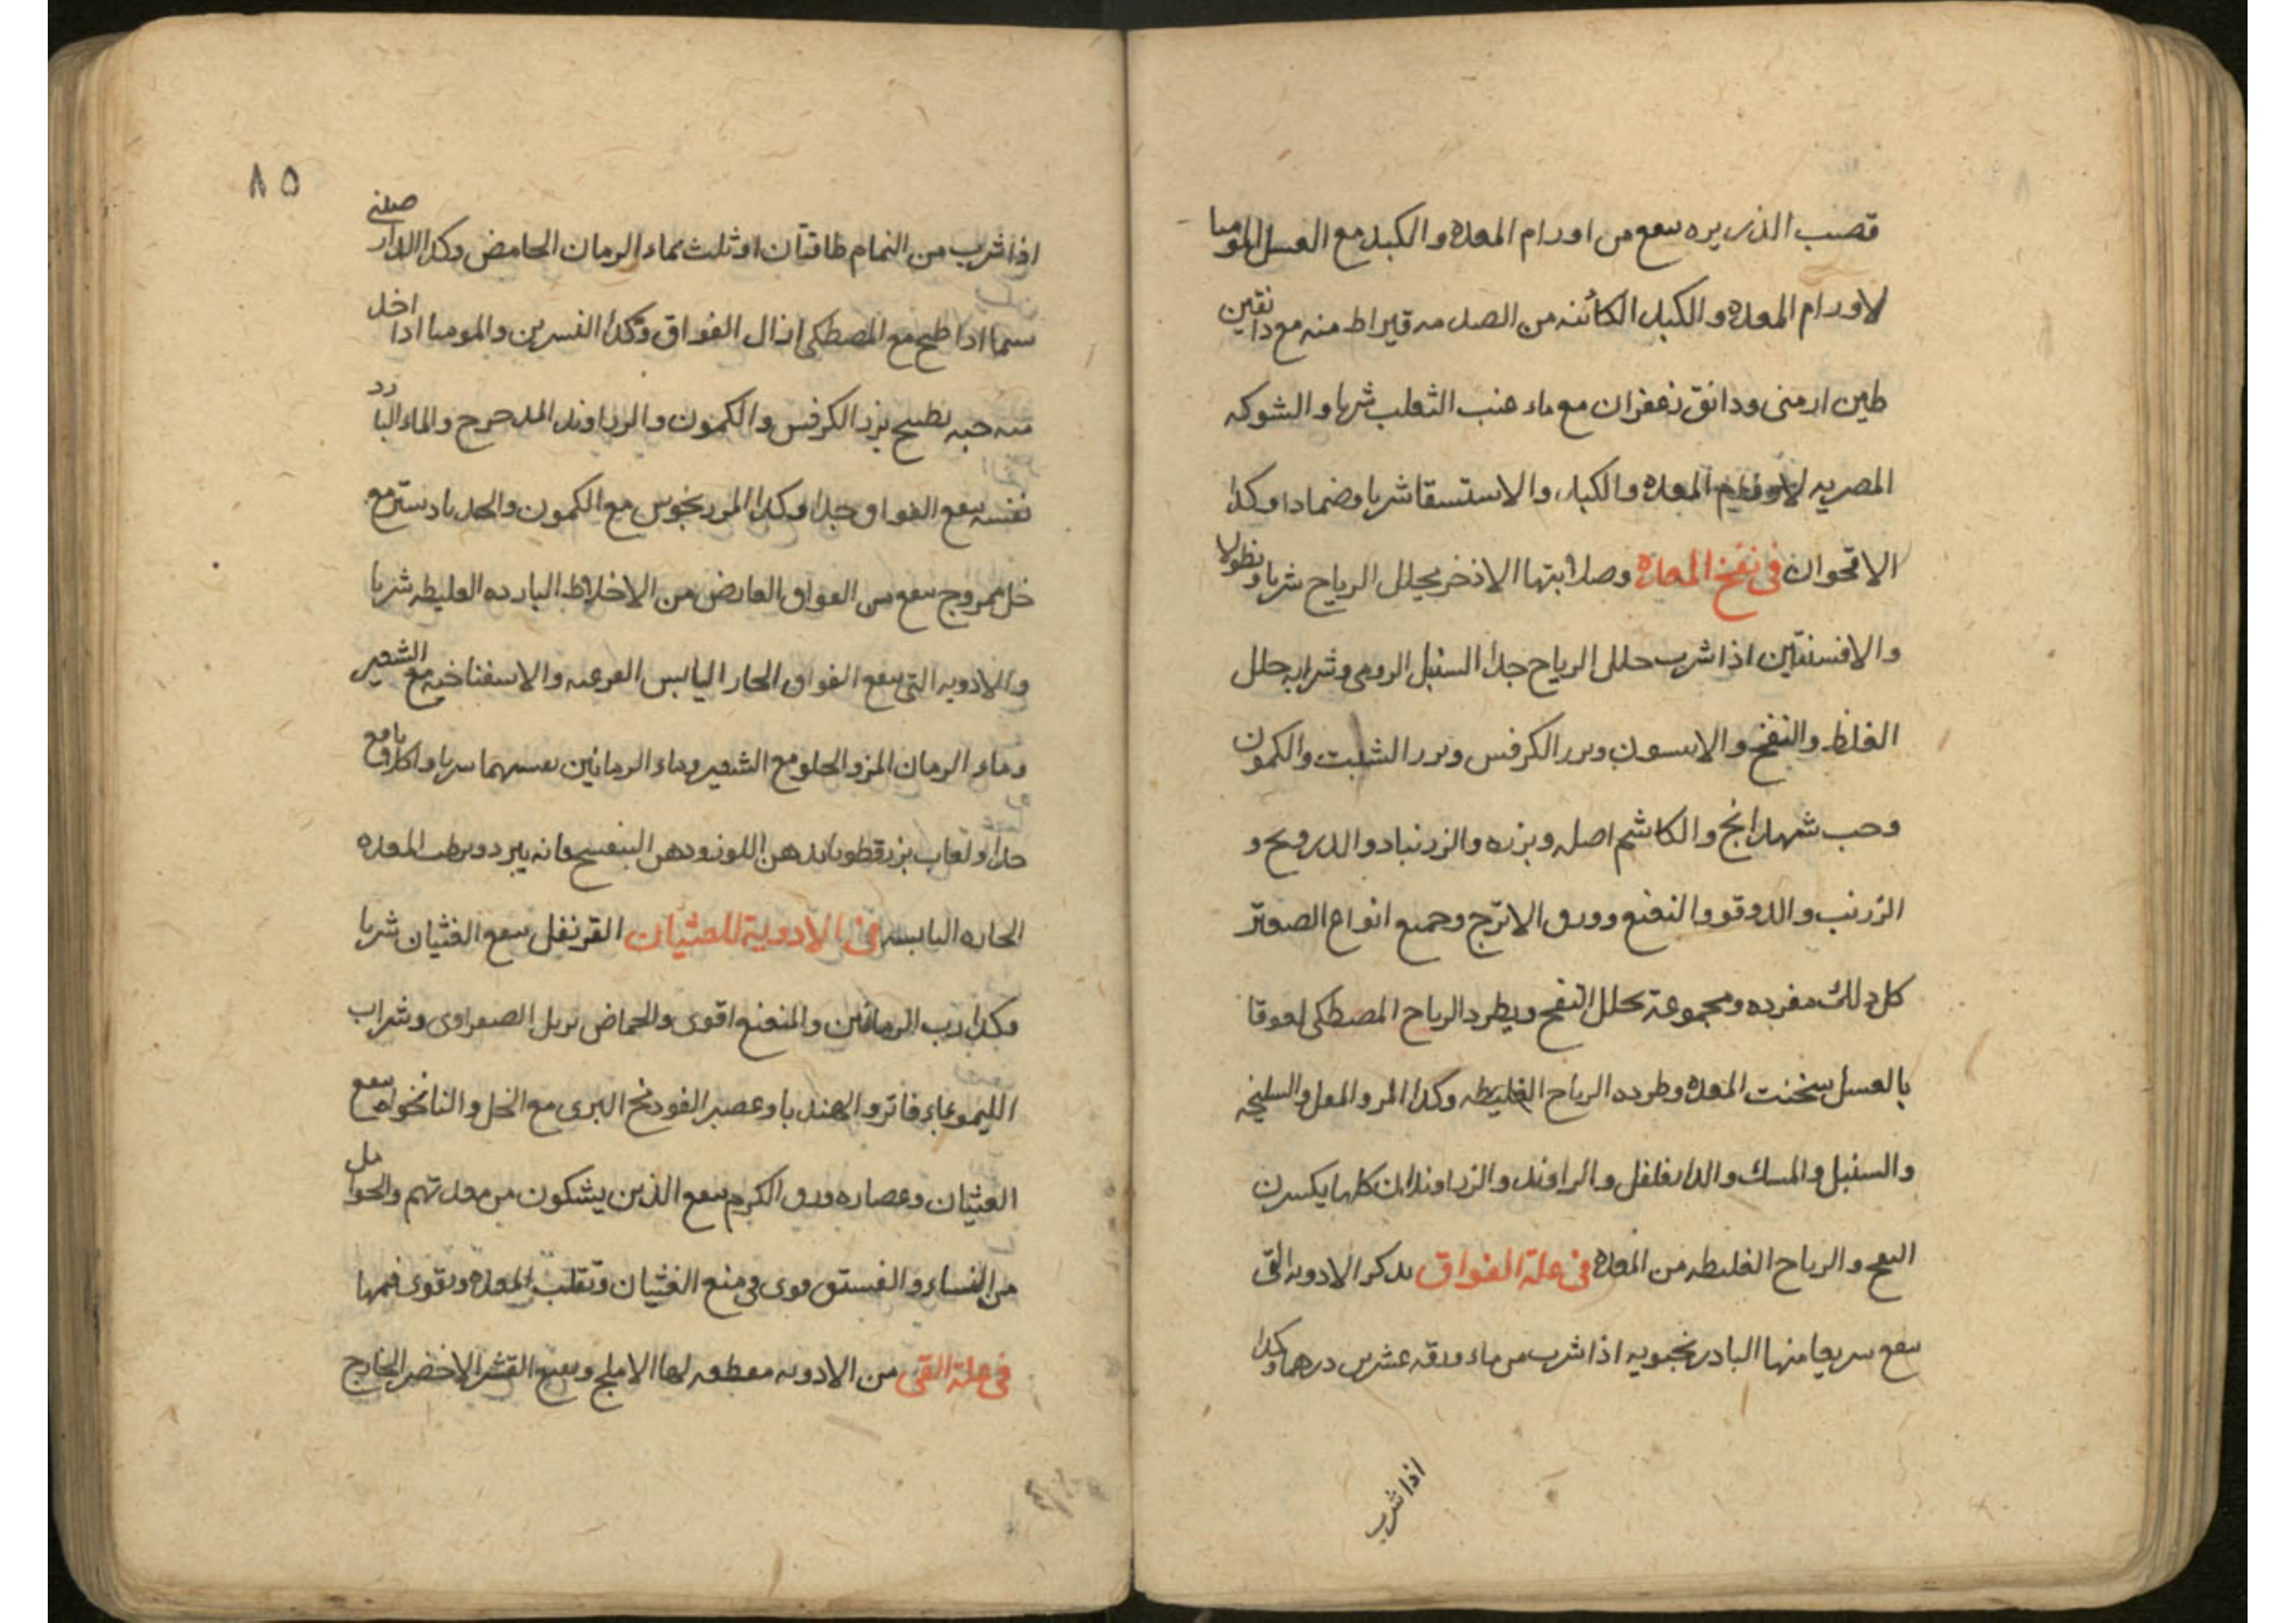 قصب الذريره ينفع من اورام المعدة والكبد مع العسل الموميا
لاورام المعدة والكبد الكائنه من الصدمه قيراط منه مع دانقين
طين ارمنى ودانق زعفران مع ماء عنب الثعلب شربا والشوكه
المصريه لاورام المعدة والكبد والاستسقا شربا وضمادا وكذا
الاقحوان في نفخ المعدة وصلابتها الاذخر يحلل الرياح شربا ونطولا
والافسنتين اذا شرب حلل الرياح جدا السنبل الرومى وشرابه حلل
الغلظ والنفخ والانيسون وبزر الكرفس وبزر الشبت والكمون
وحب شهدانج والكاشم اصله وبزره والزرنباد والدرونج و
الزرنب والدوقو والنعنع وورق الاترج وجميع انواع الصعتر
كل ذلك مفرده ومجموعة تحلل النفخ ويطرد الرياح المصطكى لعوقا
بالعسل سخنت المعدة وطرده الرياح الغليظه وكذا المر والمقل والسليخه
والسنبل والمسك والدارفلفل والراوند والزراوندان كلها يكسرن
النفخ والرياح الغليظه من المعدة في علة الفواق يذكر الادويه التى
ينفع سريعا منها البادرنجبويه اذا شرب من ماء ورقه عشرين درهما وكذا
اذا شرب
٨٥
اذا شرب من النمام طاقتان او ثلث بماء الرمان الحامض وكذا الدارصينى
سيما اذا طبخ مع المصطكى ازال الفواق وكذا النسرين والموميا اذا اخذ
منه حبه بطبيخ بزر الكرفس والكمون والزراوند المدحرج والماء البارد
نفسه ينفع الفواق جدا وكذا المرزنجوش مع الكمون والجندبادستر مع
خل ممزوج ينفع من الفواق العارض من الاخلاط البارده الغليظه شربا
والادويه التى ينفع الفواق الحار اليابس القرعيه والاسفناخيه مع الشعير
وماء الرمان المز والحلو مع الشعير وماء الرمانين
جدا ولعاب بزرقطونا بدهن اللوز ودهن البنفسج فانه يبرد ويرطب المعده
الحاره اليابسه في الادوية للغثيان القرنفل ينفع الغثيان شربا
وكذا رب الرمانين والمنعنع اقوى والحماض يزيل الصفراوى وشراب
الليمو بماء فاتر والهندبا وعصير الفودنج البرى مع الخل والنانخواه ينفع
الغثيان وعصاره ورق الكرم ينفع الذين يشكون من معدتهم والحوامل
من النساء والفستق قوى في منع الغثيان وتقلب المعدة ويقوى فمها
في علة القئ من الادويه مقطعه لها الاملج وينفع القشر الاخضر الخارج